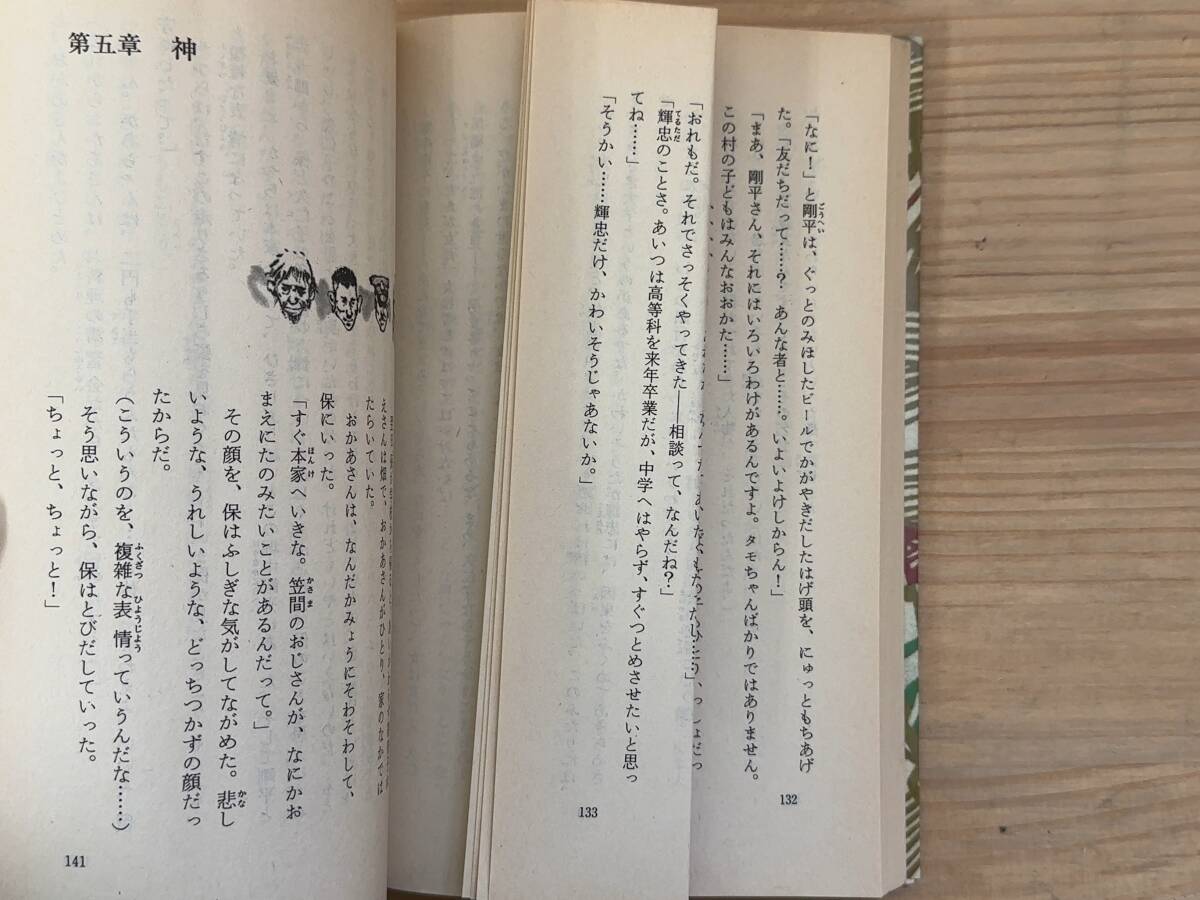 「なに！」と剛平は、ぐっとのみほしたビールでかがやきだしたはげ頭を、にゅっともちあげ
た。「友だちだって……？　あんな者と……。いよいよけしからん！」
「まあ、剛平さん、それにはいろいろわけがあるんですよ。タモちゃんばかりではありません。
この村の子どもはみんなおおかた……」
132
「おれもだ。それでさっそくやってきた――相談って、なんだね？」
「輝忠のことさ。あいつは高等科を来年卒業だが、中学へはやらず、すぐつとめさせたいと思っ
てね……」
「そうかい……輝忠だけ、かわいそうじゃあないか。」
133
第五章　神
えさんは畑で、おかあさんがひとり、家のなかでは
たらいていた。
おかあさんは、なんだかみょうにそわそわして、
保にいった。
「すぐ本家へいきな。笠間のおじさんが、なにかお
まえにたのみたいことがあるんだって。」
その顔を、保はふしぎな気がしてながめた。悲し
いような、うれしいような、どっちつかずの顔だっ
たからだ。
（こういうのを、複雑な表情っていうんだな……）
そう思いながら、保はとびだしていった。
「ちょっと、ちょっと！」
141